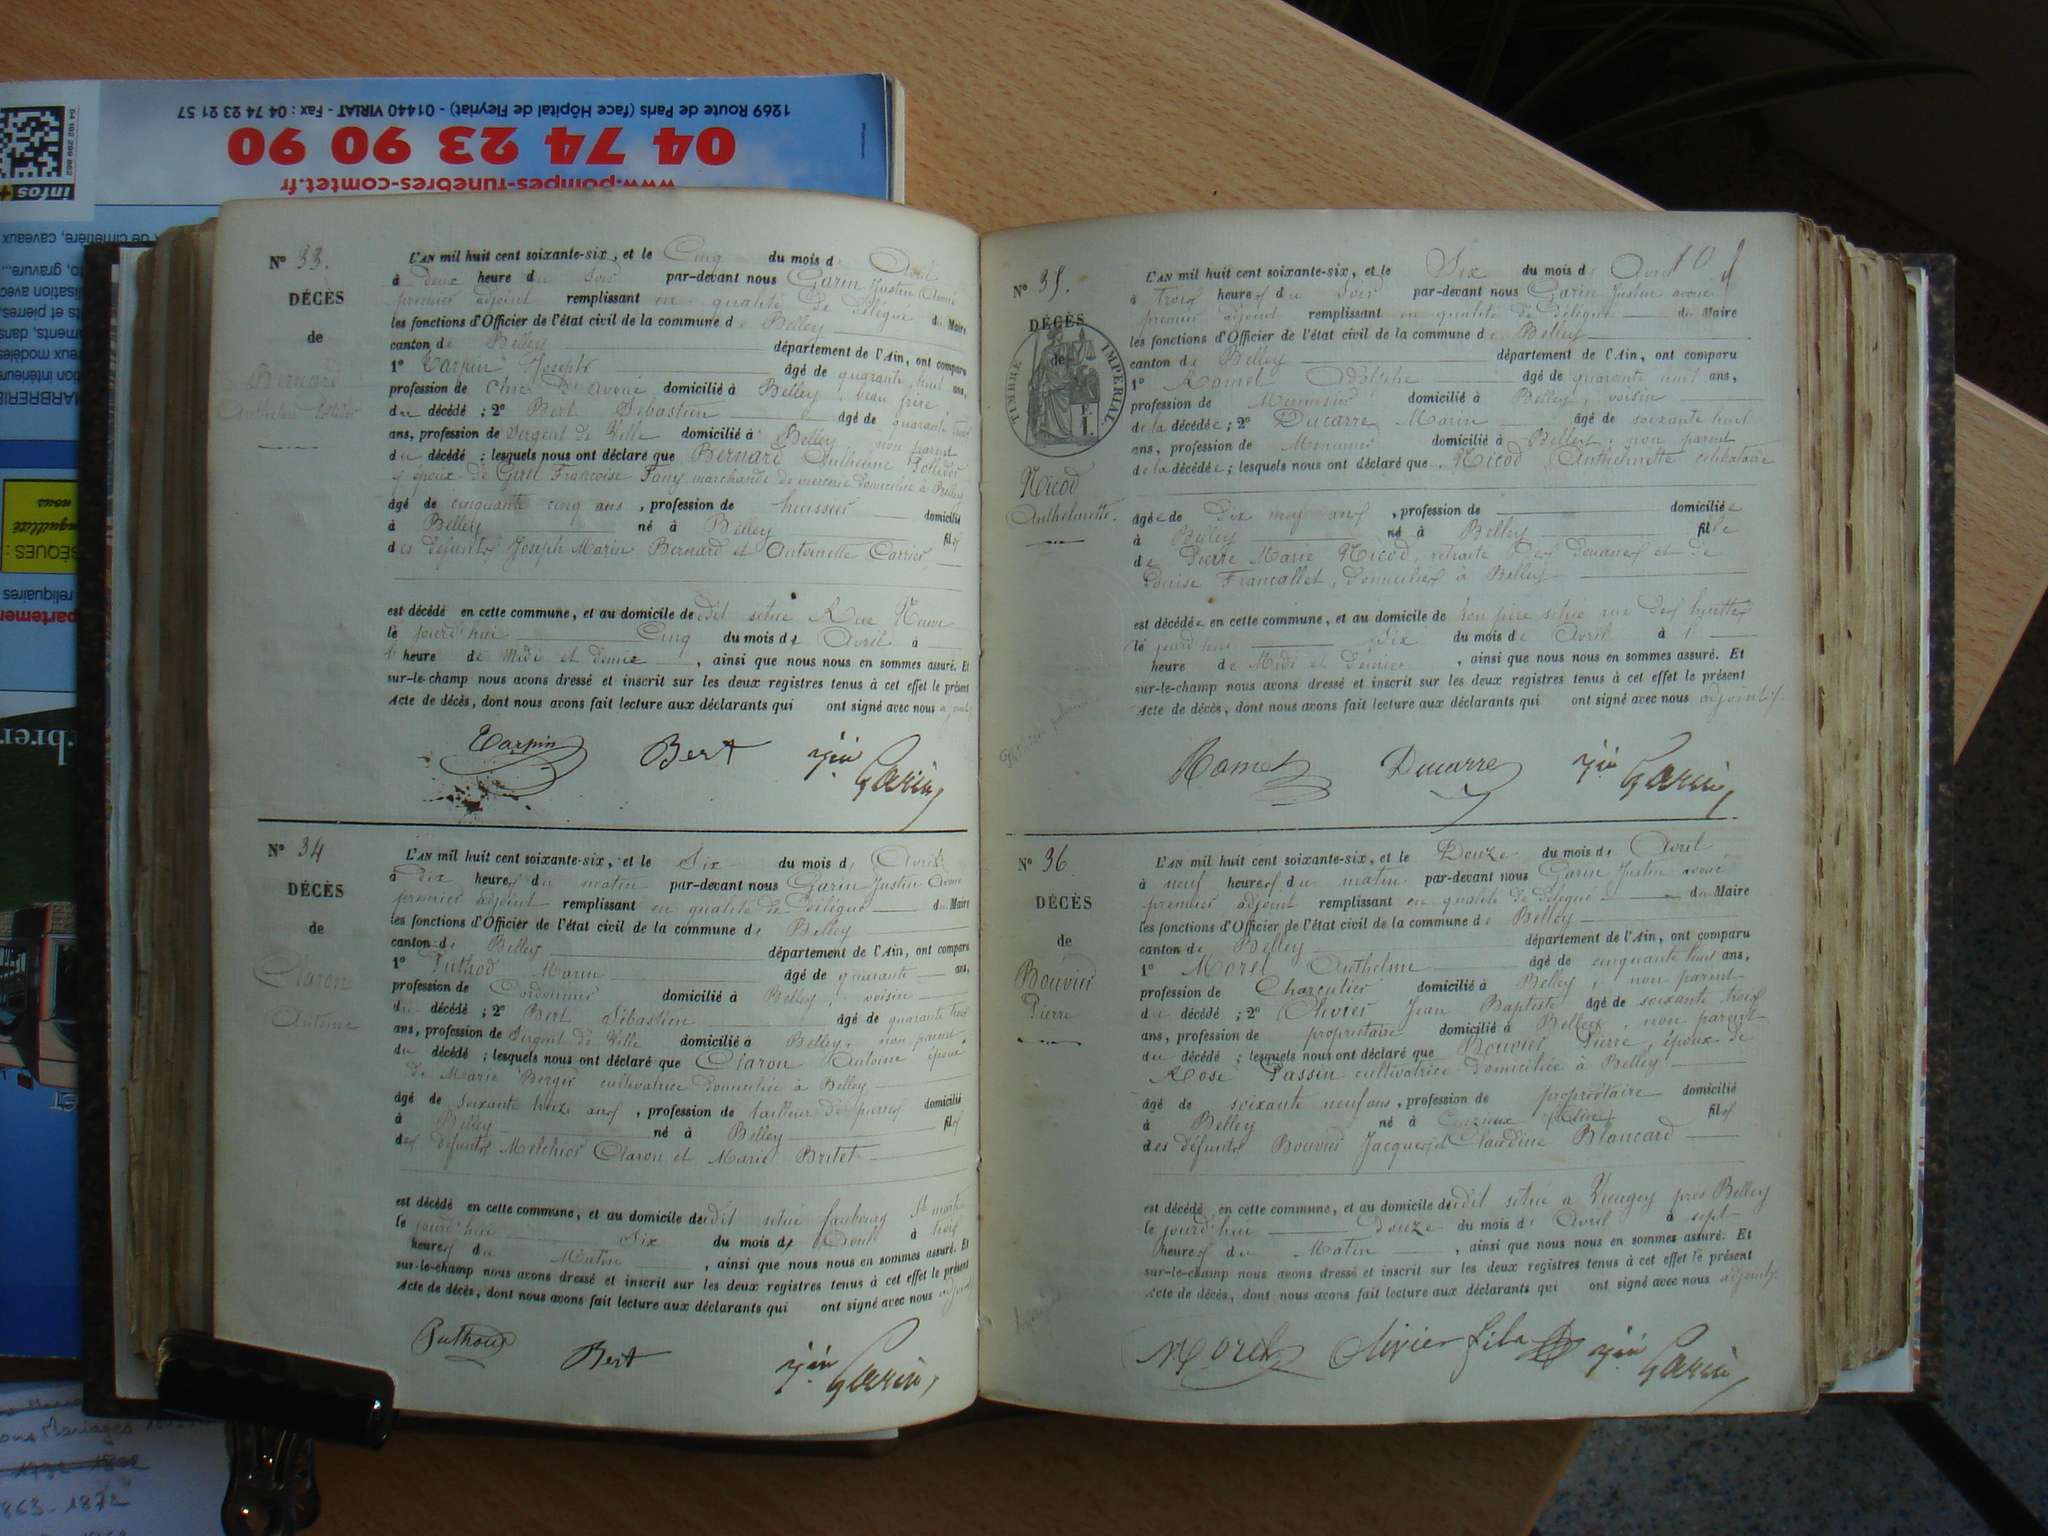 1269 Route de Paris (face Hôpital de Fleyriat) - 01440 VIRIAT - Fax : 04 74 23 21 57
04 74 23 90 90
www.pompes-funebres-comtet.fr
infos+
N° 33.
DÉCÈS
de
Bernard
L'AN mil huit cent soixante-six, et le Cinq du mois d Avril
à deux heure du Soir par-devant nous Garin Justin Avoué
premier adjoint remplissant en qualité de Délégué du Maire
les fonctions d'Officier de l'état civil de la commune de Belley
canton de Belley département de l'Ain, ont comparu
1° Tarpin Joseph âgé de quarante huit ans,
profession de Clerc d'avoué domicilié à Belley, beau frère
du décédé ; 2° Bert Sébastien âgé de quarante trois
ans, profession de Sergent de Ville domicilié à Belley non parent
du décédé ; lesquels nous ont déclaré que Bernard Anthelme
époux de Françoise Fany marchande de mercerie domiciliée à Belley
âgé de cinquante cinq ans, profession de huissier domicilié
à Belley né à Belley fils
des défunts Joseph Marin Bernard et Antoinette Carrier
est décédé en cette commune, et au domicile de dit situé Rue Neuve
le jourd'hui Cinq du mois de Avril à
heure de Midi et demie, ainsi que nous nous en sommes assuré. Et
sur-le-champ nous avons dressé et inscrit sur les deux registres tenus à cet effet le présent
Acte de décès, dont nous avons fait lecture aux déclarants qui ont signé avec nous adjoint
Tarpin Bert Garin
N° 34
DÉCÈS
de
Claron
Antoine
L'AN mil huit cent soixante-six, et le Six du mois d Avril
à dix heures du matin par-devant nous Garin Justin Avoué
premier adjoint remplissant en qualité de Délégué du Maire
les fonctions d'Officier de l'état civil de la commune de Belley
canton de Belley département de l'Ain, ont comparu
1° Puthod Marin âgé de quarante ans,
profession de Cordonnier domicilié à Belley, voisin
du décédé ; 2° Bert Sébastien âgé de quarante trois
ans, profession de Sergent de Ville domicilié à Belley, non parent
du décédé ; lesquels nous ont déclaré que Claron Antoine époux
de Marie Berger cultivatrice domiciliée à Belley
âgé de soixante treize ans, profession de tailleur de pierres domicilié
à Belley né à Belley fils
des défunts Melchior Claron et Marie Britet
est décédé en cette commune, et au domicile de dit situé faubourg St martin
le jourd'hui Six du mois de Avril à trois
heures du Matin, ainsi que nous nous en sommes assuré. Et
sur-le-champ nous avons dressé et inscrit sur les deux registres tenus à cet effet le présent
Acte de décès, dont nous avons fait lecture aux déclarants qui ont signé avec nous adjoint
Puthod Bert Garin
N° 35.
DÉCÈS
de
TIMBRE IMPÉRIAL
Nicod
Anthelmette
L'AN mil huit cent soixante-six, et le Six du mois d Avril
à trois heures du Soir par-devant nous Garin Justin avoué
premier adjoint remplissant en qualité de Délégué du Maire
les fonctions d'Officier de l'état civil de la commune de Belley
canton de Belley département de l'Ain, ont comparu
1° Ramel Adolphe âgé de quarante huit ans,
profession de Menuisier domicilié à Belley, voisin
de la décédée ; 2° Ducarre Marin âgé de soixante huit
ans, profession de Menuisier domicilié à Belley, non parent
de la décédée ; lesquels nous ont déclaré que Nicod Anthelmette célibataire
âgée de dix neuf ans, profession de domiciliée
à Belley né à Belley fille
de Pierre Marie Nicod, retraité des Douanes et de
Louise Francallet, domiciliés à Belley
est décédée en cette commune, et au domicile de son père situé rue des
le jourd'hui Six du mois de Avril à l'
heure de Midi et demie, ainsi que nous nous en sommes assuré. Et
sur-le-champ nous avons dressé et inscrit sur les deux registres tenus à cet effet le présent
Acte de décès, dont nous avons fait lecture aux déclarants qui ont signé avec nous adjoint
Ramel Ducarre Garin
N° 36.
DÉCÈS
de
Bouvier
Pierre
L'AN mil huit cent soixante-six, et le Douze du mois de Avril
à neuf heures du matin par-devant nous Garin Justin avoué
premier adjoint remplissant en qualité de Délégué du Maire
les fonctions d'Officier de l'état civil de la commune de Belley
canton de Belley département de l'Ain, ont comparu
1° Morel Anthelme âgé de cinquante huit ans,
profession de Charcutier domicilié à Belley, non parent
du décédé ; 2° Olivier Jean Baptiste âgé de soixante trois
ans, profession de propriétaire domicilié à Belley, non parent
du décédé ; lesquels nous ont déclaré que Bouvier Pierre, époux de
Rose Passin cultivatrice domiciliée à Belley
âgé de soixante neuf ans, profession de propriétaire domicilié
à Belley né à fils
des défunts Bouvier Jacques et Claudine Blancard
est décédé en cette commune, et au domicile de dit situé à près Belley
le jourd'hui douze du mois de Avril à sept
heures du Matin, ainsi que nous nous en sommes assuré. Et
sur-le-champ nous avons dressé et inscrit sur les deux registres tenus à cet effet le présent
Acte de décès, dont nous avons fait lecture aux déclarants qui ont signé avec nous adjoint
Morel Olivier Garin